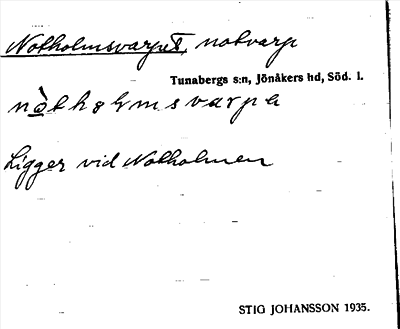 Notholmsvarpet, notvarp
Tunabergs s:n, Jönåkers hd, Söd. l.
Ligger vid Notholmen
STIG JOHANSSON 1935.